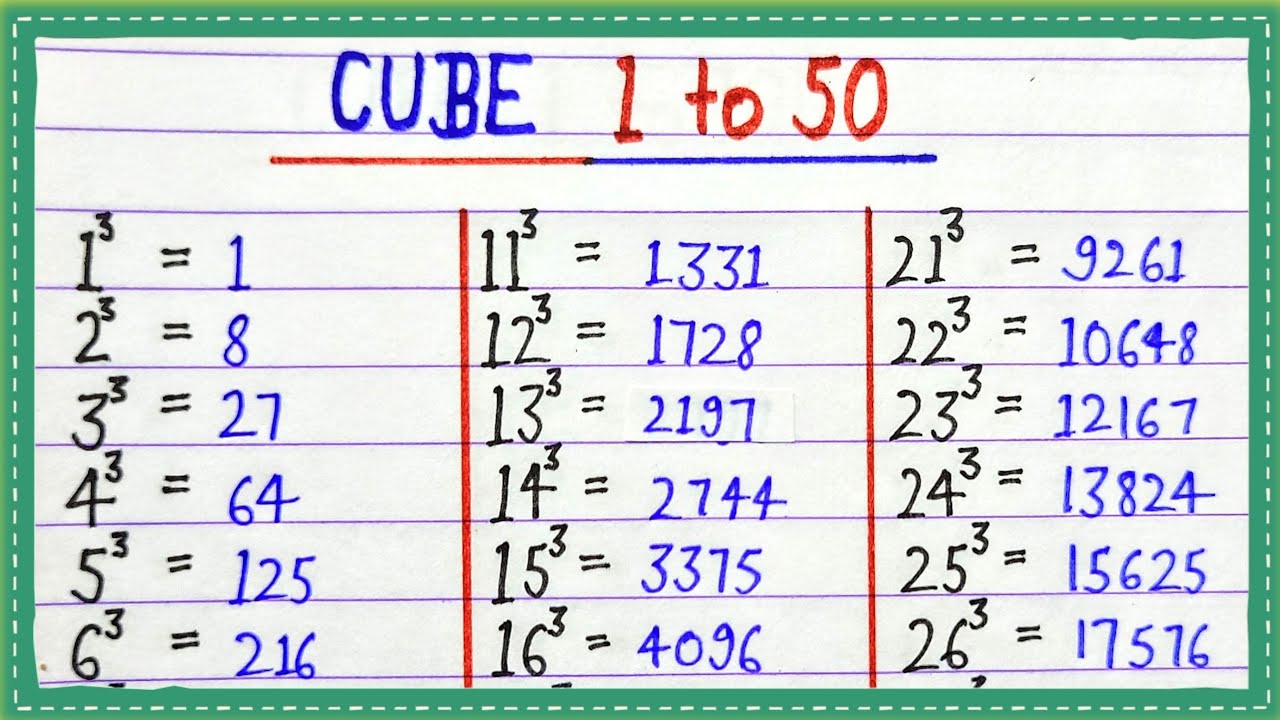 CUBE 1 to 50
1³ = 1
2³ = 8
3³ = 27
4³ = 64
5³ = 125
6³ = 216
11³ = 1331
12³ = 1728
13³ = 2197
14³ = 2744
15³ = 3375
16³ = 4096
21³ = 9261
22³ = 10648
23³ = 12167
24³ = 13824
25³ = 15625
26³ = 17576